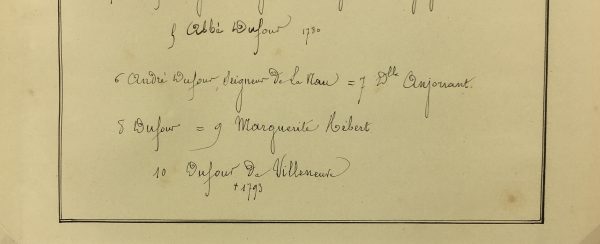 5 Abbé Dufour 1780
6 André Dufour, Seigneur de la Nau = 7 Dlle Anjorrant.
8 Dufour = 9 Marguerite Hébert
10 Dufour De Villeneuve
+ 1793